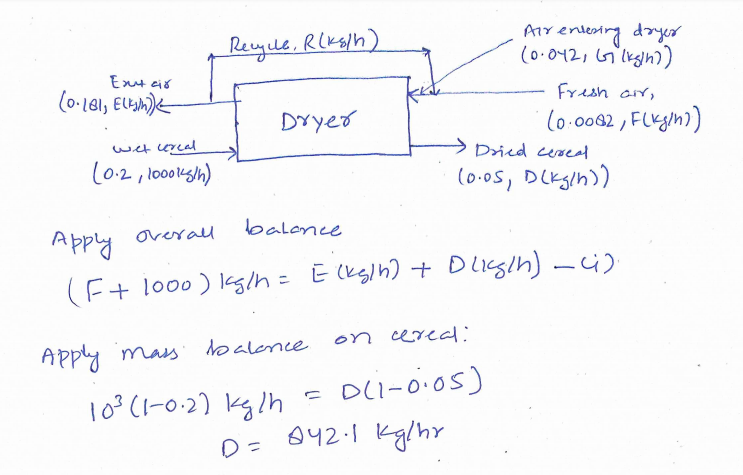 Recycle, R(kg/h)
Air entering dryer
(0.042, G (kg/h))
Exit air
(0.181, E(kg/h))
Fresh air,
(0.0082, F(kg/h))
Dryer
wet cereal
(0.2, 1000kg/h)
Dried cereal
(0.05, D(kg/h))
Apply overall balance
(F + 1000) kg/h = E (kg/h) + D(kg/h) - (i)
Apply mass balance on cereal:
10³ (1-0.2) kg/h = D(1-0.05)
D = 842.1 kg/hr